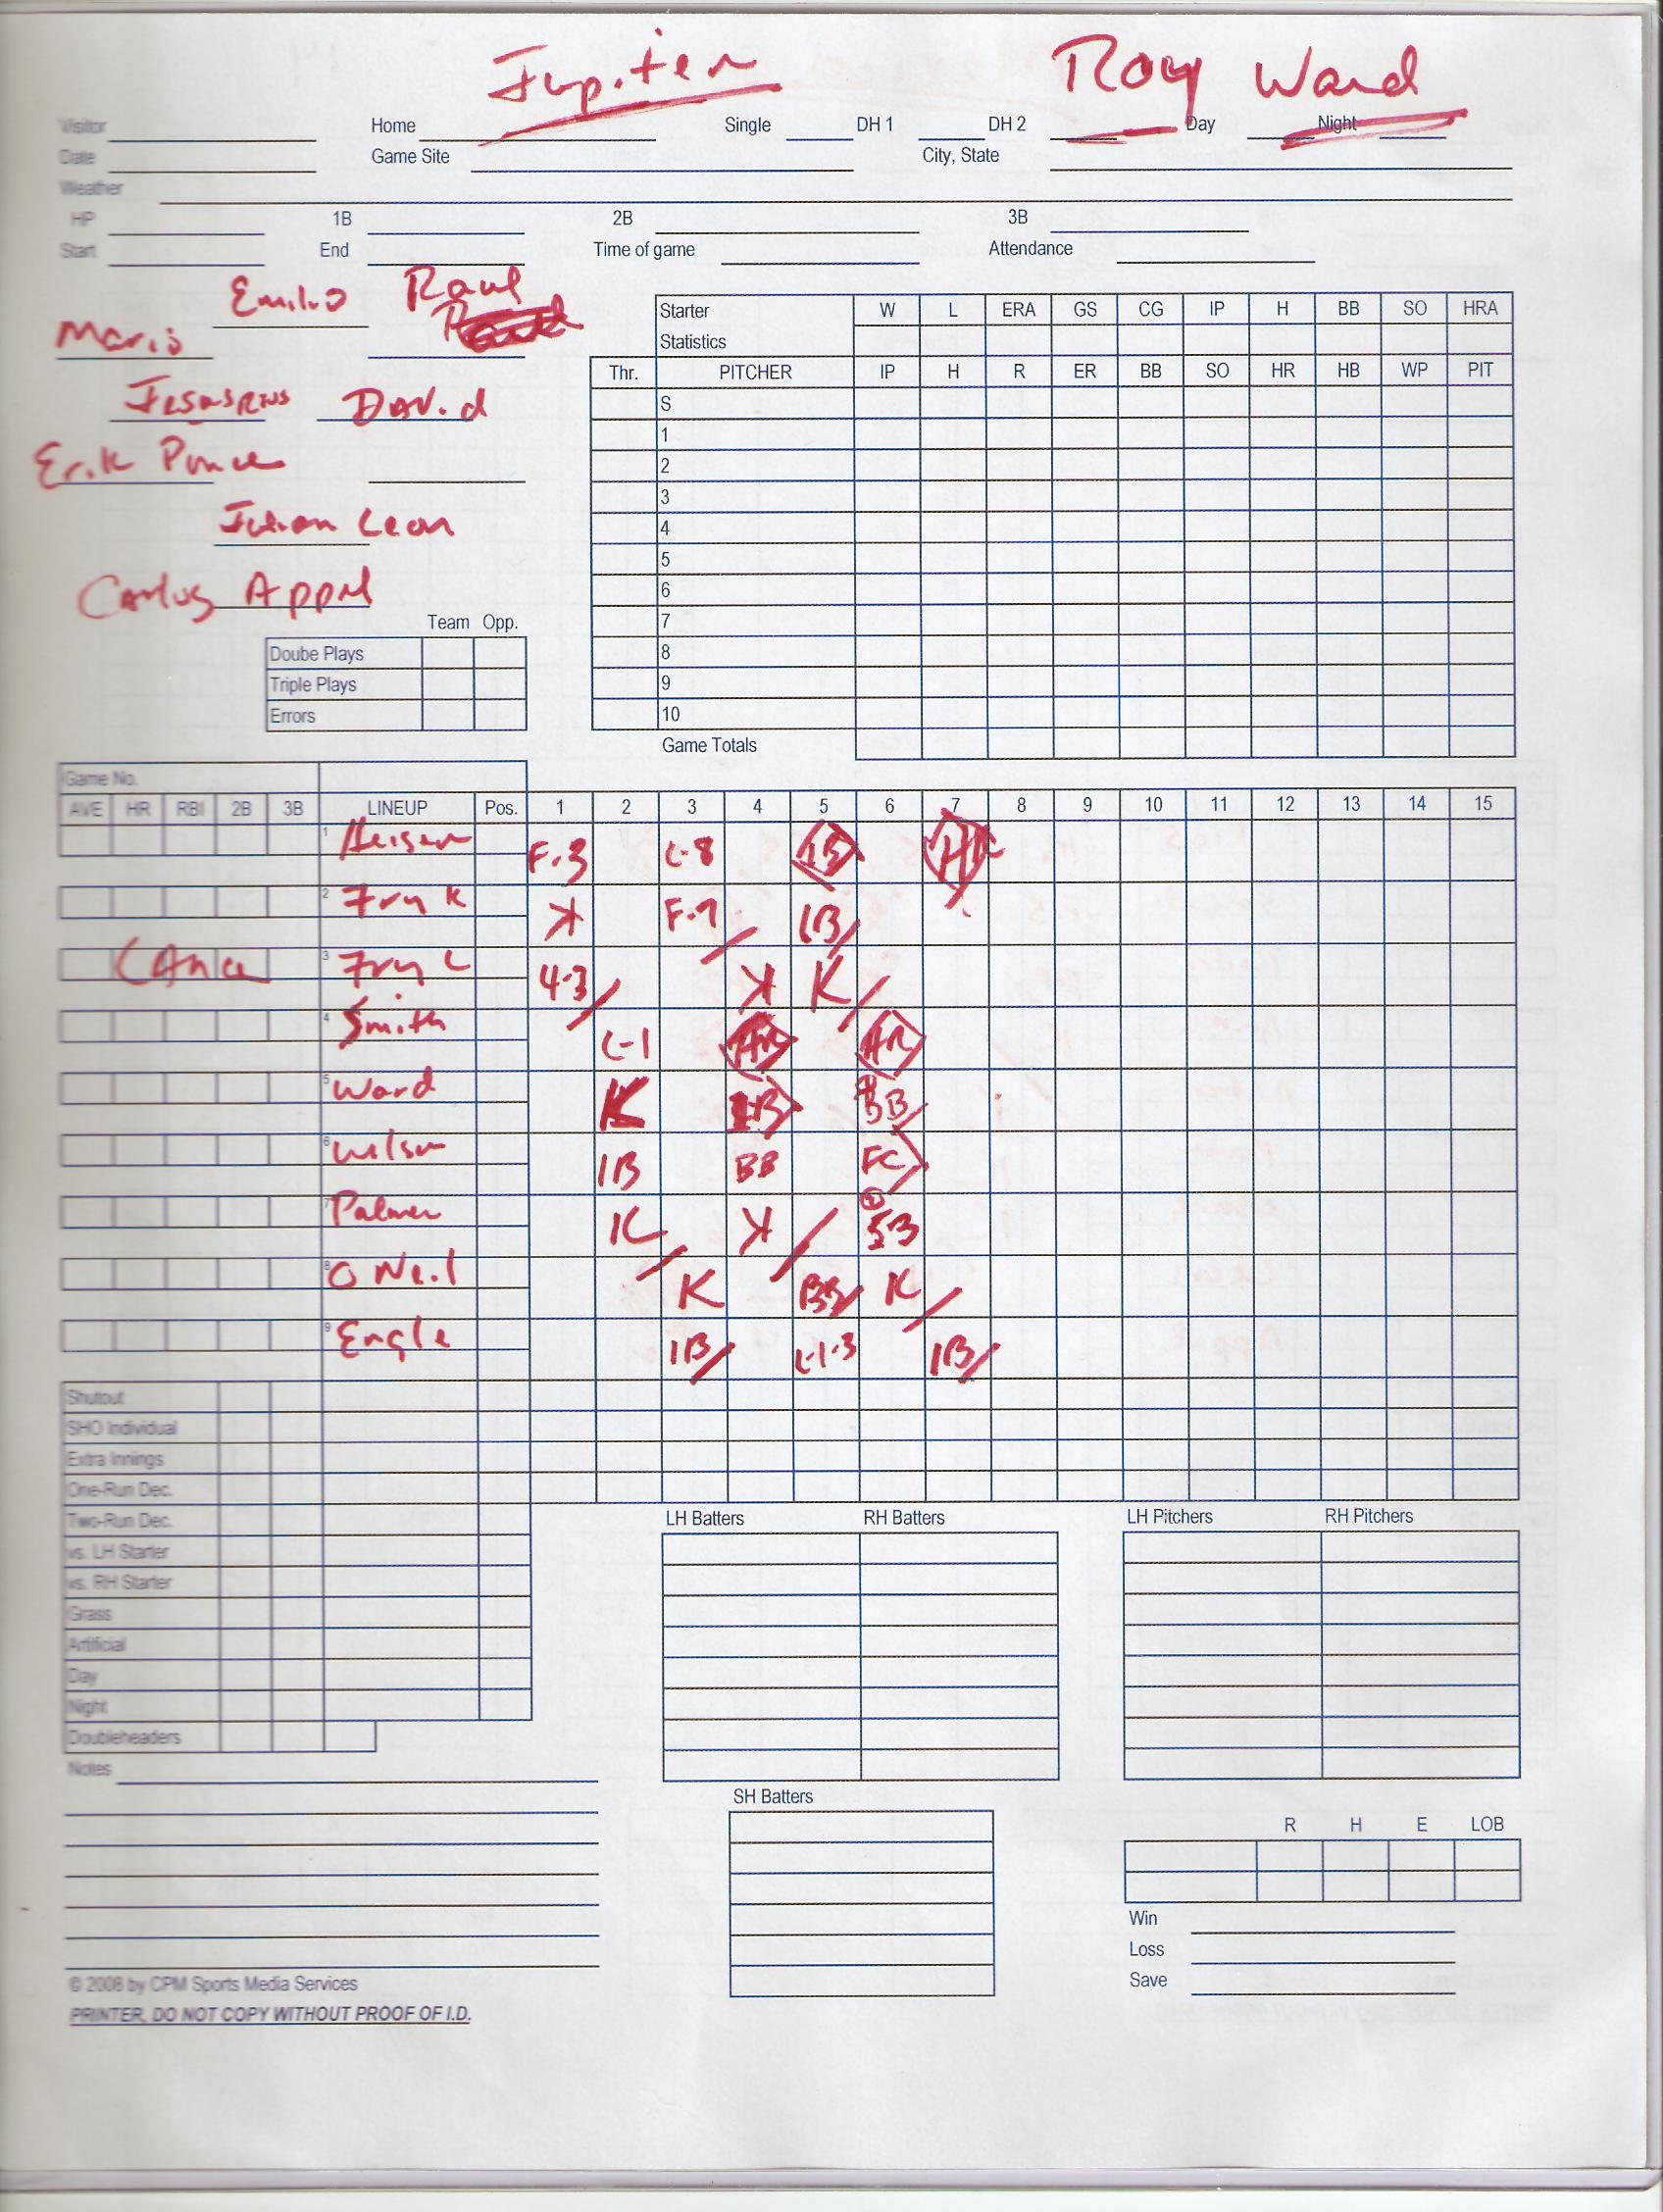 Jupiter Roy Ward
Visitor Home Single DH 1 DH 2 Day Night
Date Game Site City, State
Weather
HP 1B 2B 3B
Start End Time of game Attendance
Mario Emilio Raul
David
Erik Ponce
Julian Leon
Carlos Appel
Starter Statistics W L ERA GS CG IP H BB SO HRA
Thr. PITCHER IP H R ER BB SO HR HB WP PIT
S
1
2
3
4
5
6
7
8
9
10
Game Totals
Team Opp.
Doube Plays
Triple Plays
Errors
Game No.
AVE HR RBI 2B 3B LINEUP Pos. 1 2 3 4 5 6 7 8 9 10 11 12 13 14 15
1 F-3 L-8 HR
2 Fry K K F-7 1B
Lance 3 Fry L 4-3 K K
4 Smith L-1 HR HR
5 Ward K BB
6 Wilson 1B BB FC
7 Palmer K K 53
8 O Neil K BB K
9 Engle 1B L-1-3 1B
Shutout
SHO Individual
Extra Innings
One-Run Dec.
Two-Run Dec.
vs. LH Starter
vs. RH Starter
Grass
Artificial
Day
Night
Doubleheaders
Notes
LH Batters RH Batters LH Pitchers RH Pitchers
SH Batters
R H E LOB
Win
Loss
Save
© 2008 by CPM Sports Media Services
PRINTER, DO NOT COPY WITHOUT PROOF OF I.D.